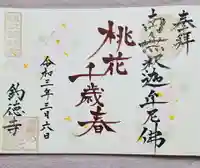 奉拝
南無釈迦牟尼佛
桃花
千歳春
令和三年三月六日
釣徳寺